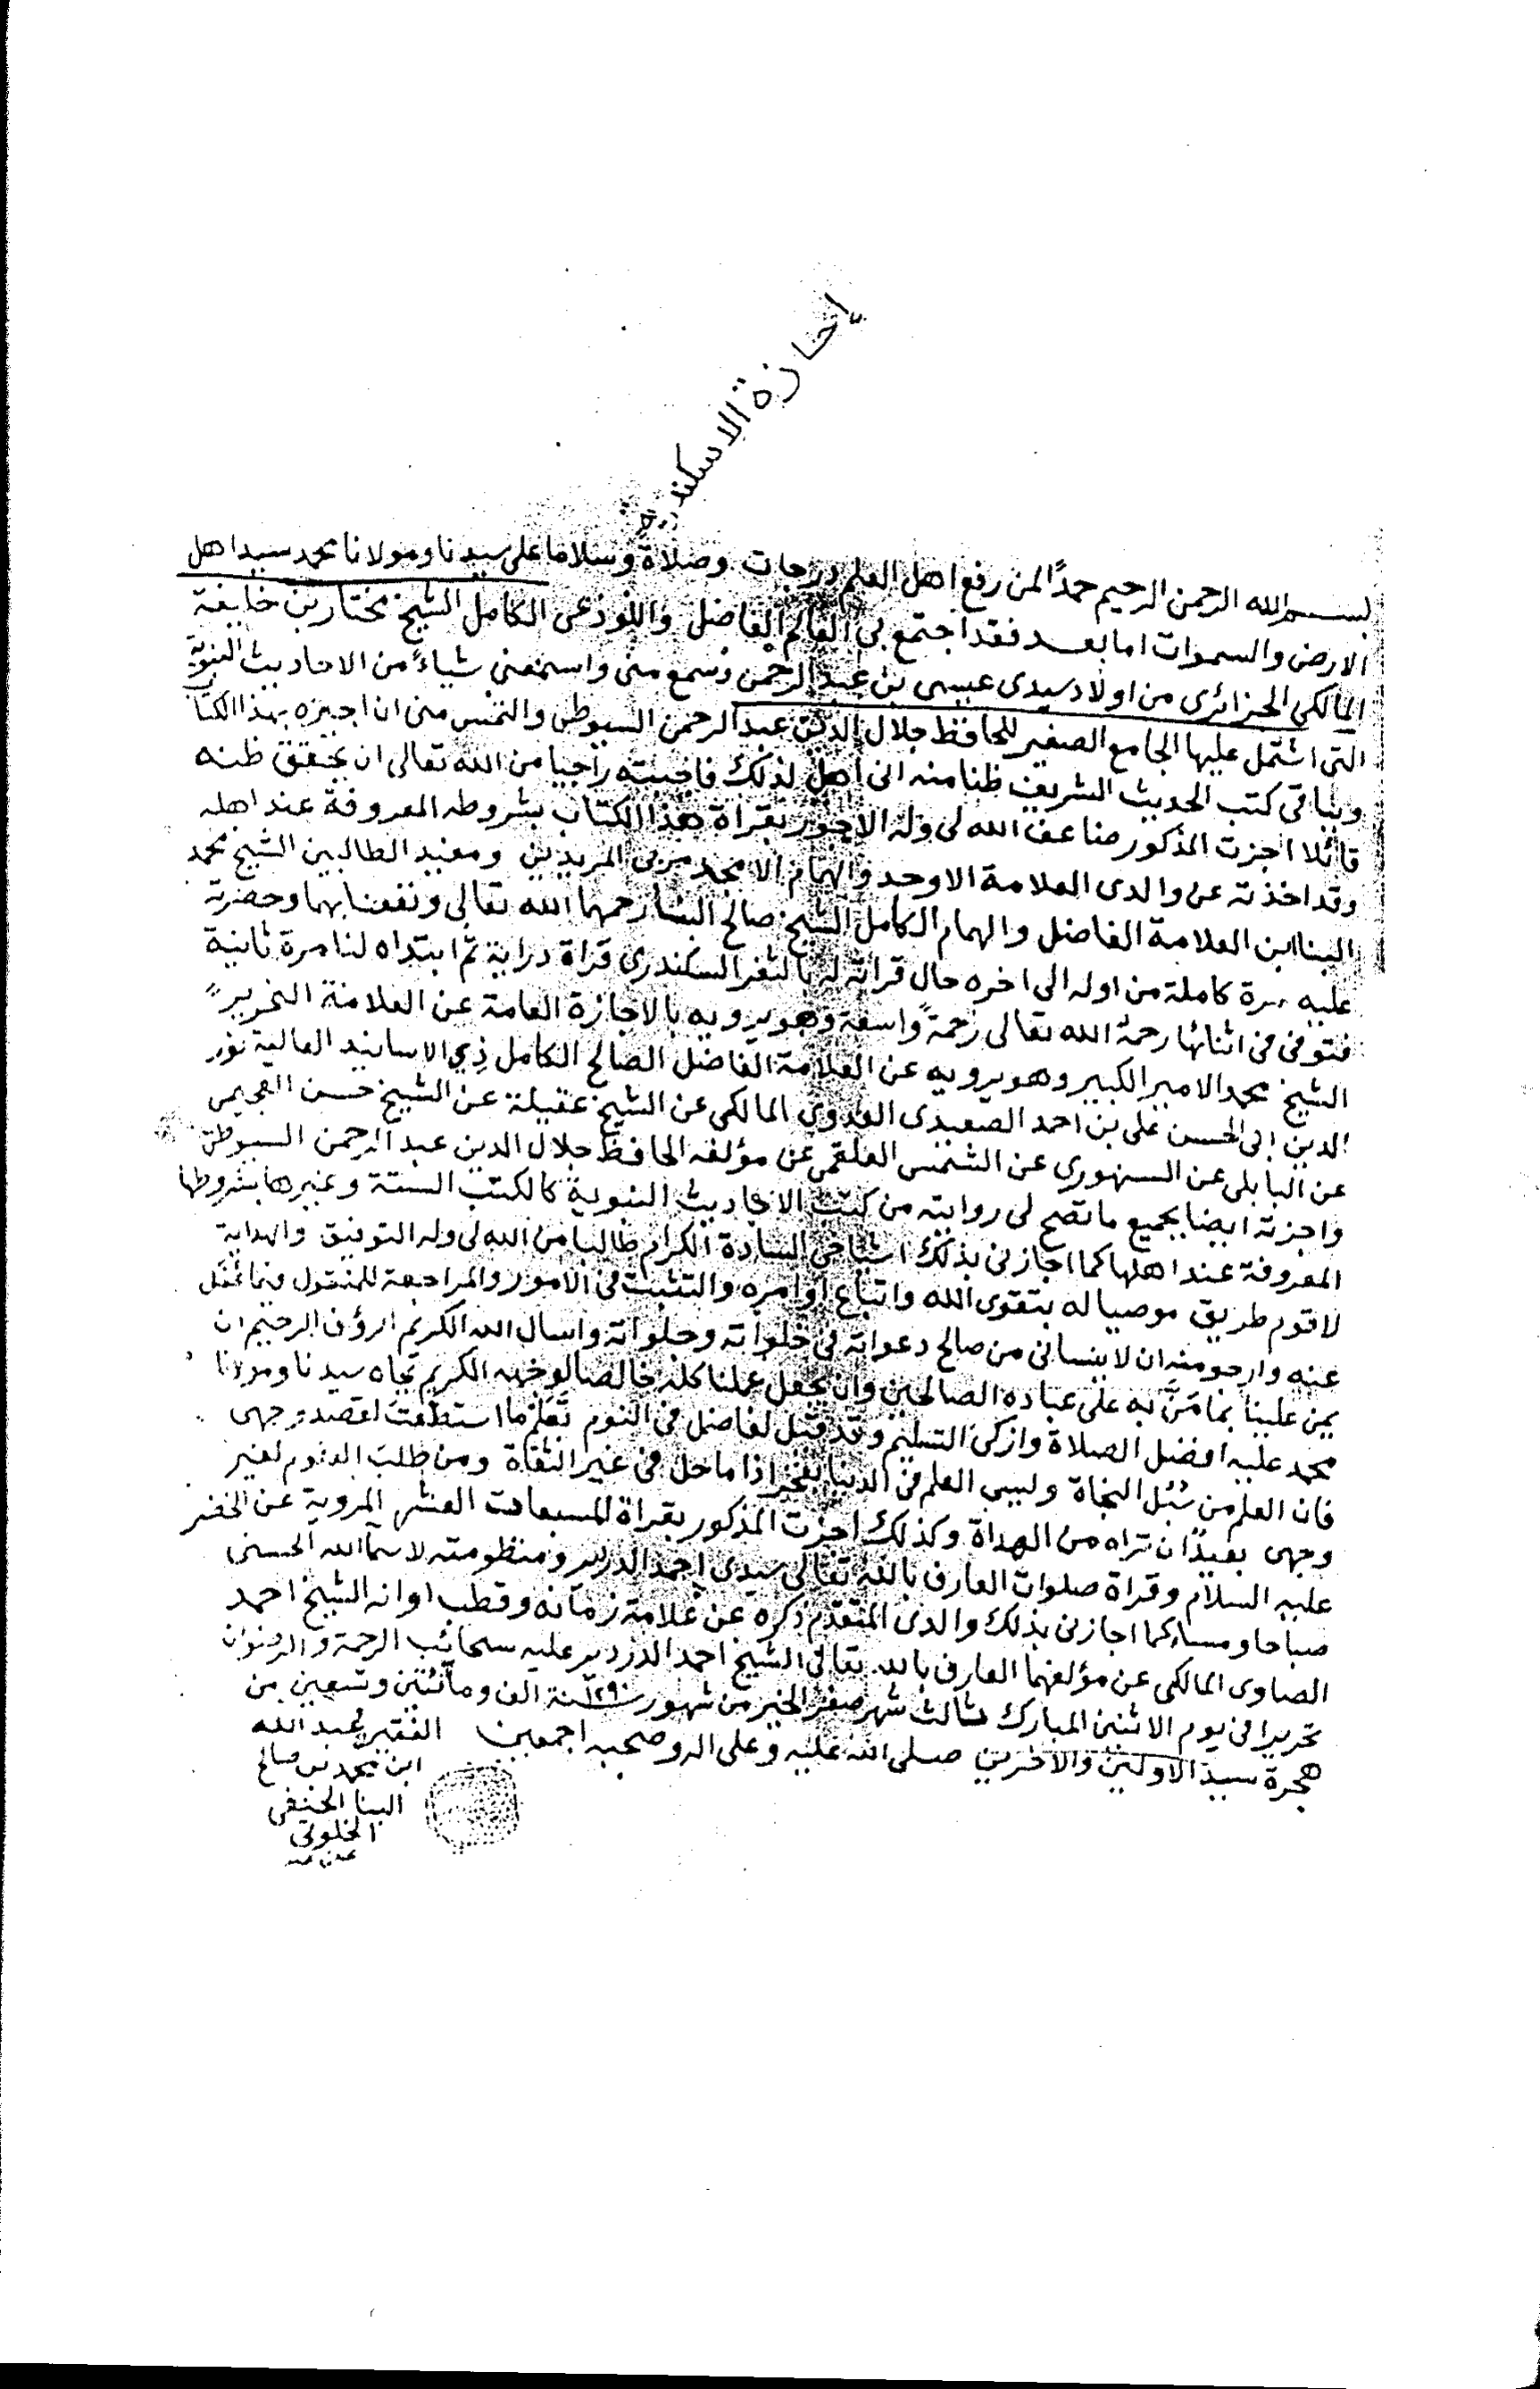 إجازة الاسكندرية
بسم الله الرحمن الرحيم حمدًا لمن رفع اهل العلم درجات وصلاة وسلاما على سيدنا ومولانا محمد سيد اهل
الارض والسموات اما بعد فقد اجتمع بى العالم الفاضل واللوذعى الكامل الشيخ مختار بن خليفة
المالكي الجزائرى من اولاد سيدى عيسى بن عبد الرحمن وسمع منى واسمعنى شياءً من الاحاديث النبوية
التى اشتمل عليها الجامع الصغير للحافظ جلال الدين عبد الرحمن السيوطى والتمس منى ان اجيزه بهذا الكتاب
وبباقى كتب الحديث الشريف ظنا منه انى اهل لذلك فاجبته راجيا من الله تعالى ان يحقق ظنه
قائلا اجزت المذكور ضاعف الله لى وله الاجور بقراة هذا الكتاب بشروطه المعروفة عند اهله
وقد اخذته عن والدى العلامة الاوحد والهمام الامجد مربى المريدين ومفيد الطالبين الشيخ محمد
البنا ابن العلامة الفاضل والهمام الكامل الشيخ صالح البنا رحمهما الله تعالى ونفعنا بهما وحضرته
عليه مرة كاملة من اوله الى اخره حال قراته له بالثغر السكندرى قراة دراية ثم ابتداه لنا مرة ثانية
فتوفى فى اثنائها رحمه الله تعالى رحمةً واسعة وهو يرويه بالاجازة العامة عن العلامة النحرير
الشيخ محمد الامير الكبير وهو يرويه عن العلامة الفاضل الصالح الكامل ذي الاسانيد العالية نور
الدين ابى الحسن على بن احمد الصعيدى العدوى المالكى عن الشيخ عقيلة عن الشيخ حسن العجيمى
عن البابلى عن السنهورى عن الشمس العلقمى عن مؤلفه الحافظ جلال الدين عبد الرحمن السيوطى
واجزته ايضا بجميع ما تصح لى روايته من كتب الاحاديث النبوية كالكتب الستة وغيرها بشروطها
المعروفة عند اهلها كما اجازنى بذلك اشياخى السادة الكرام طالبا من الله لى وله التوفيق والهداية
لاقوم طريق موصيا له بتقوى الله واتباع اوامره والتثبت فى الامور والمراجعة للمنقول فيما غفل
عنه وارجو منه ان لا ينسانى من صالح دعواته فى خلواته وجلواته واسال الله الكريم الرؤف الرحيم ان
يمن علينا بما مَنَّ به على عباده الصالحين وان يجعل عملنا كله خالصا لوجهه الكريم بجاه سيدنا ومولانا
محمد عليه افضل الصلاة وازكى التسليم وقد قيل لفاضل فى النوم تعلم ما استطعت لقصد وجهى
فان العلم من سُبُل النجاة وليس العلم فى الدنيا بفخر اذا ما حل فى غير الثقاة ومن طلب العلوم لغير
وجهى بعيدًا ان تراه من الهداة وكذلك اجزت المذكور بقراة المسبعات العشر المروية عن الخضر
عليه السلام وقراة صلوات العارف بالله تعالى سيدى احمد الدردير ومنظومته لاسما الله الحسنى
صباحا ومساء كما اجازنى بذلك والدى المتقدم ذكره عن علامة زمانه وقطب اوانه الشيخ احمد
الصاوى المالكى عن مؤلفهما العارف بالله تعالى الشيخ احمد الدردير عليه سحائب الرحمة والرضوان
تحريرا فى يوم الاثنين المبارك ثالث شهر صفر الخير من شهور سنة ١٢٩٠ الف ومائتين وتسعين من
هجرة سيد الاولين والاخرين صلى الله عليه وعلى اله وصحبه اجمعين الفقير عبد الله
ابن محمد بن صالح
البنا الحنفى
الخلوتى
عفى عنه